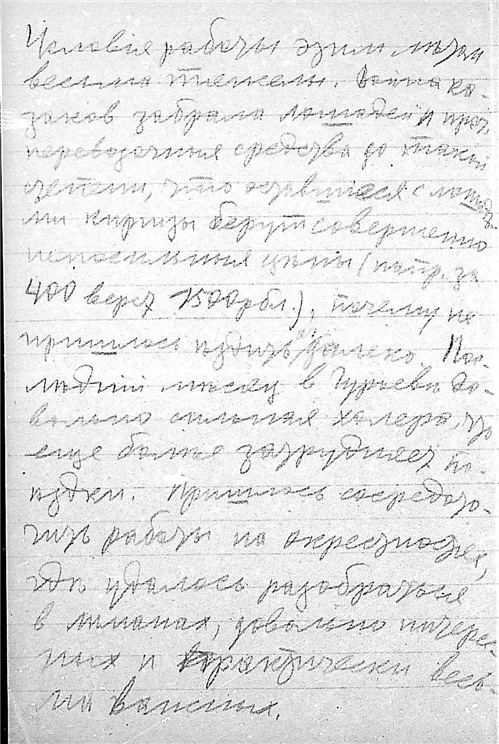 Условія работы этим лѣтом
весьма тяжелы. Война ка-
заков забрала лошадей и проч.
перевозочныя средства до такой
степени, что оставшіеся с лошадь-
ми киргизы берут совершенно
непосильныя цѣны (напр. за
400 верст 1500 рбл.), почему не
пришлось ѣздить далеко. Пос-
лѣдній мѣсяц в Гурьевѣ до-
вольно сильная холера, что
еще болѣе затрудняет по-
ѣздки. Пришлось сосредото-
чить работы на окрестностях,
гдѣ удалось разобраться
в лиманах, довольно интерес-
ных и практически весь-
ма важных.